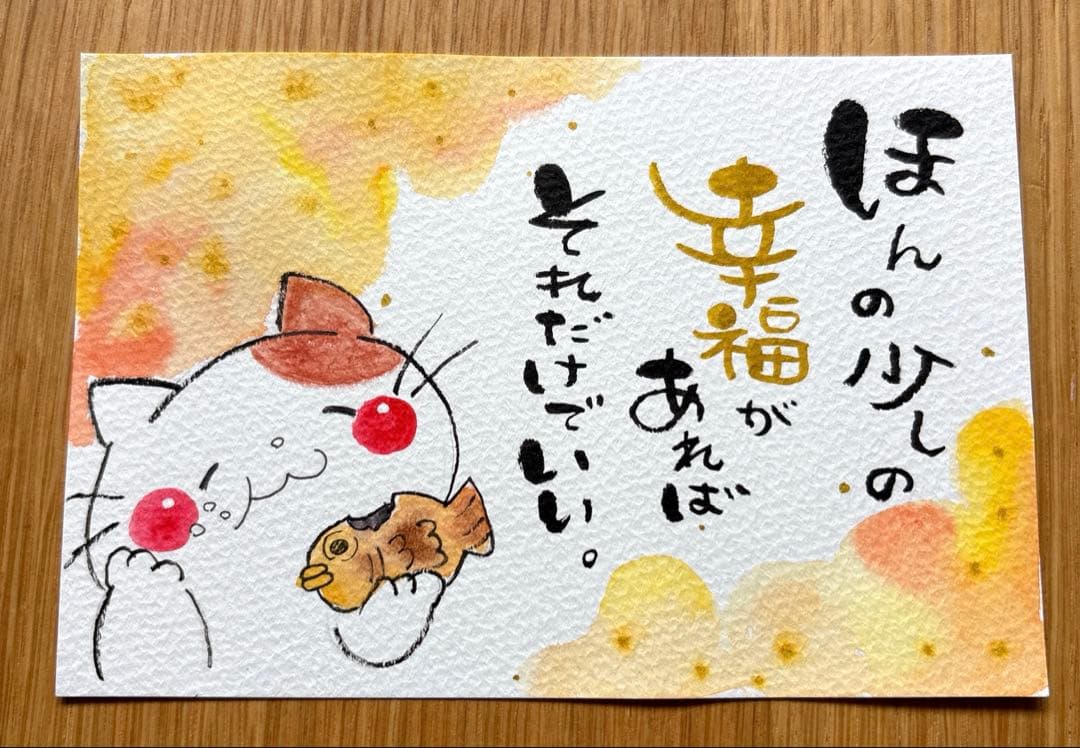 ほんの少しの
幸福が
あれば
それだけでいい。